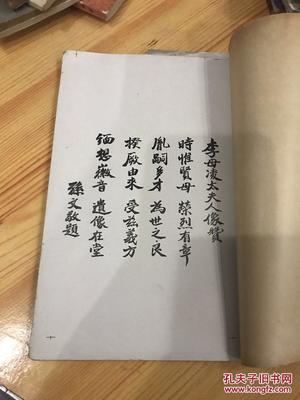 李母凌太夫人像贊
時惟賢母 榮烈有章
胤嗣多才 為世之良
揆厥由來 受茲義方
緬想徽音 遺像在堂
孫文敬題
孔夫子旧书网